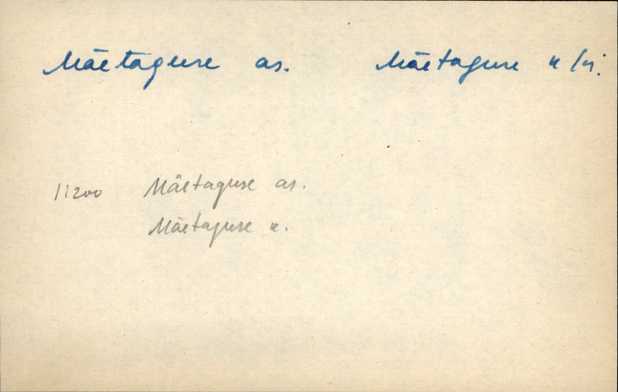 Mäetaguse as. Mäetaguse k/n.
11200 Mäetaguse as.
Mäetaguse k.